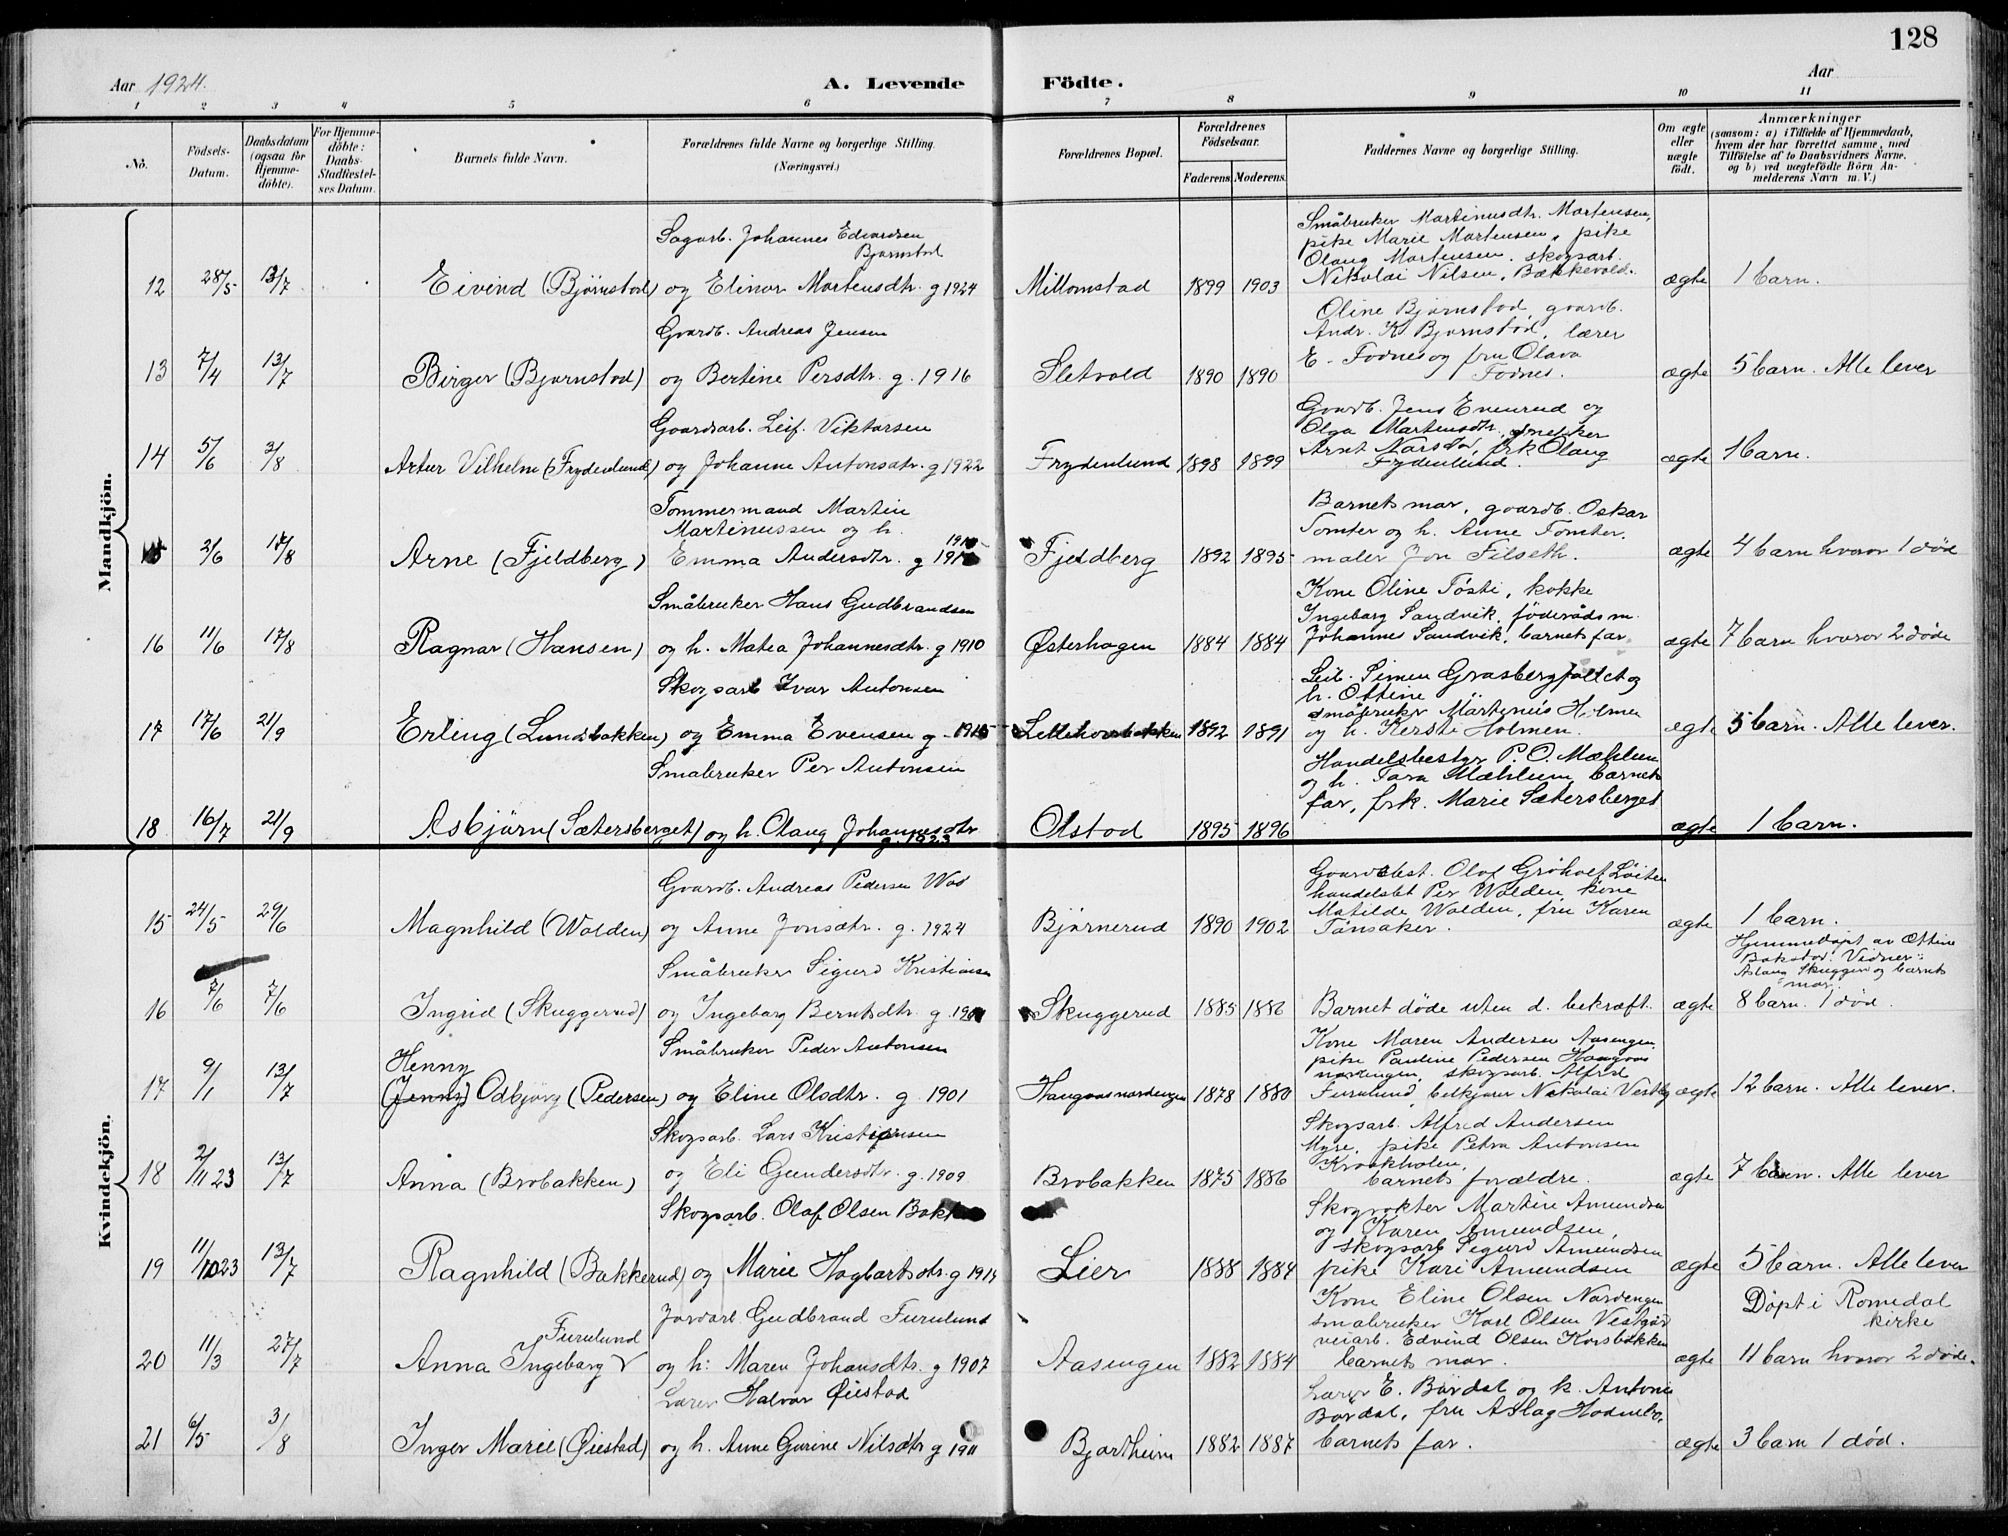 128
Aar 1924.
A. Levende Födte.
Aar
1 2 3 4 5 6 7 8 9 10 11
No.
Födsels-Datum.
Daabsdatum (ogsaa for Hjemme-döbte).
For Hjemme-döbte: Daabs-Stadfæstel-ses Datum.
Barnets fulde Navn.
Forældrenes fulde Navne og borgerlige Stilling. (Næringsvei.)
Forældrenes Bopæl.
Forældrenes Födselsaar.
Faderens. Moderens.
Faddernes Navne og borgerlige Stilling.
Om ægte eller uægte födt.
Anmærkninger
(saasom: a) i Tilfælde af Hjemmedaab,
hvem der har forrettet samme, med
Tilföielse af to Daabsvidners Navne,
og b) ved uægtefödte Börn An-
melderens Navn m. V.)
Mandkjön.
Sagarb. Johannes Edvardsen
Bjørnstad
12 28/5 13/7 Eivind (Bjørnstad) og Elinor Martensdtr. g 1924 Millomstad 1899 1903 ægte 1 barn.
Småbruker Martinusdtr. Martensen,
pike Marie Martensen, pike
Olaug Martensen, skogsarb.
Nikolai Nilsen, Bækkevold.
Gaardb. Andreas Jensen
13 7/4 13/7 Birger (Bjørnstad) og Bertine Persdtr. g. 1916 Sletvold 1890 1890 ægte 5 barn. Alle lever
Oline Bjørnstad, gaardb.
Andr. K. Bjørnstad, lærer
E. Fodnes og fru Olava
Fodnes.
Gaardsarb. Leif Viktorsen
14 5/6 3/8 Artur Vilhelm (Frydenlund) og Johanne Antonsdtr. g 1922 Frydenlund 1898 1899 ægte 1 barn.
Gaardb. Jens Evenrud og
Olga Martensdtr. snekker
Arnt Narstad, frk Olaug
Frydenlund.
Tømmermand Martin
Martinussen og h.
15 2/6 17/8 Arne (Fjeldberg) Emma Andersdtr. g Fjeldberg 1892 1895 ægte 4 barn hvorav 1 død
Barnets mor, gaardb. Oskar
Tomter og h. Anne Tomter,
maler Jon Filseth.
Småbruker Hans Gudbrandsen
16 11/6 17/8 Ragnar (Hansen) og h. Matea Johannesdtr. g 1910 Østerhagen 1884 1884 ægte 7 barn hvorav 2 døde
Kone Oline Tøsti, kokke
Ingeborg Sandvik, føderådsm.
Johannes Sandvik, barnets far.
Skogsarb Ivar Antonsen
17 17/6 21/9 Erling (Lundsbakken) og Emma Evensen g 1915 1892 1891 ægte 5 barn. Alle lever.
Leil. Simen Grasbergfaltet og
h. Ottine
småbruker Martenius Holmen
og h. Kersti Holmen.
Småbruker Per Antonsen
18 16/7 21/9 Asbjørn (Sætersberget) og h. Olaug Johannesdtr g. 1923 Olstad 1895 1896 ægte 1 barn.
Handelsbestyr P. O. Mæhlum
og h. Tara Mæhlum, barnets
far, frk. Marie Sætersberget
Kvindekjön.
Gaardb. Andreas Pedersen Wal
15 24/5 29/6 Magnhild (Wolden) og Anne Jonsdtr. g. 1924 Bjørnerud 1890 1902 ægte 1 barn.
Gaardbest. Olaf Grøholt Løiten
handelsbt Per Wolden, kone
Matilde Wolden, fru Karen
Tønsaker.
Småbruker Sigurd Kristiansen
16 7/6 7/6 Ingrid (Skuggerud) og Ingeborg Berntsdtr. g. Skuggerud 1885 1886 Barnet døde uten d. bekræft. ægte 8 barn. 1 død.
Hjemmedøpt av Ottine
Bakstad. Vidner:
Aslaug Skuggen og barnets
mor.
Småbruker Peder Antonsen
Henny
17 9/1 13/7 (Jenny) Odbjørg (Pedersen) og Eline Olsdtr. g. 1901 Haugaasnordengen 1878 1880 ægte 12 barn. Alle lever.
Kone Maren Andersen Aasengen,
pike Pauline Pedersen Haugaas
nordengen, skogsarb. Alfred
Furulund, Nikolai Vestby
Skogsarb. Lars Kristiansen
18 2/11 23 13/7 Anna (Brobakken) og Eli Gundersdtr. g. 1909 Brobakken 1875 1886 ægte 7 barn. Alle lever
Skogsarb. Alfred Andersen
Myre, pike Petra Antonsen
Kraakholen,
barnets forældre.
Skogsarb. Olaf Olsen Bakk
19 11/10 23 13/7 Ragnhild (Bakkerud) og Marie Hagbartsdtr. g 1914 Lier 1888 1884 ægte 5 barn. Alle lever
Skogvokter Martin Amundsen
og Karen Amundsen,
skogsarb Sigurd Amundsen
pike Kari Amundsen
Jordarb. Gudbrand Furulund
Furulund
20 11/3 27/7 Anna Ingeborg og h: Maren Johansdtr. g 1907 Aasengen 1882 1884 ægte 11 barn hvorav 2 døde.
Kone Eline Olsen Nordengen
småbruker Karl Olsen Vestgård
veiarb. Edvind Olsen Korsbakken
barnets mor.
Døpt i Romedal
kirke
Lærer Halvor Øiestad
21 6/5 3/8 Inger Marie (Øiestad) og h. Anne Gurine Nilsdtr g 1911 Bjartheim 1882 1887 ægte 3 barn 1 død.
Lærer E. Børdal og h. Antonie
Børdal, fru Aslag Hodnebo,
barnets far.